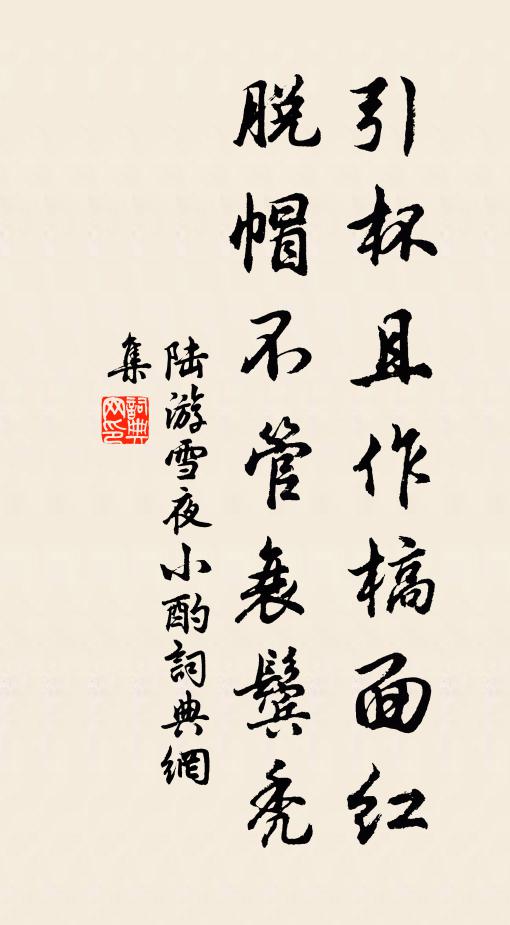 引杯且作槁面红
脱帽不管衰鬓秃
陆游雪夜小酌詞典網
集
詞典网印